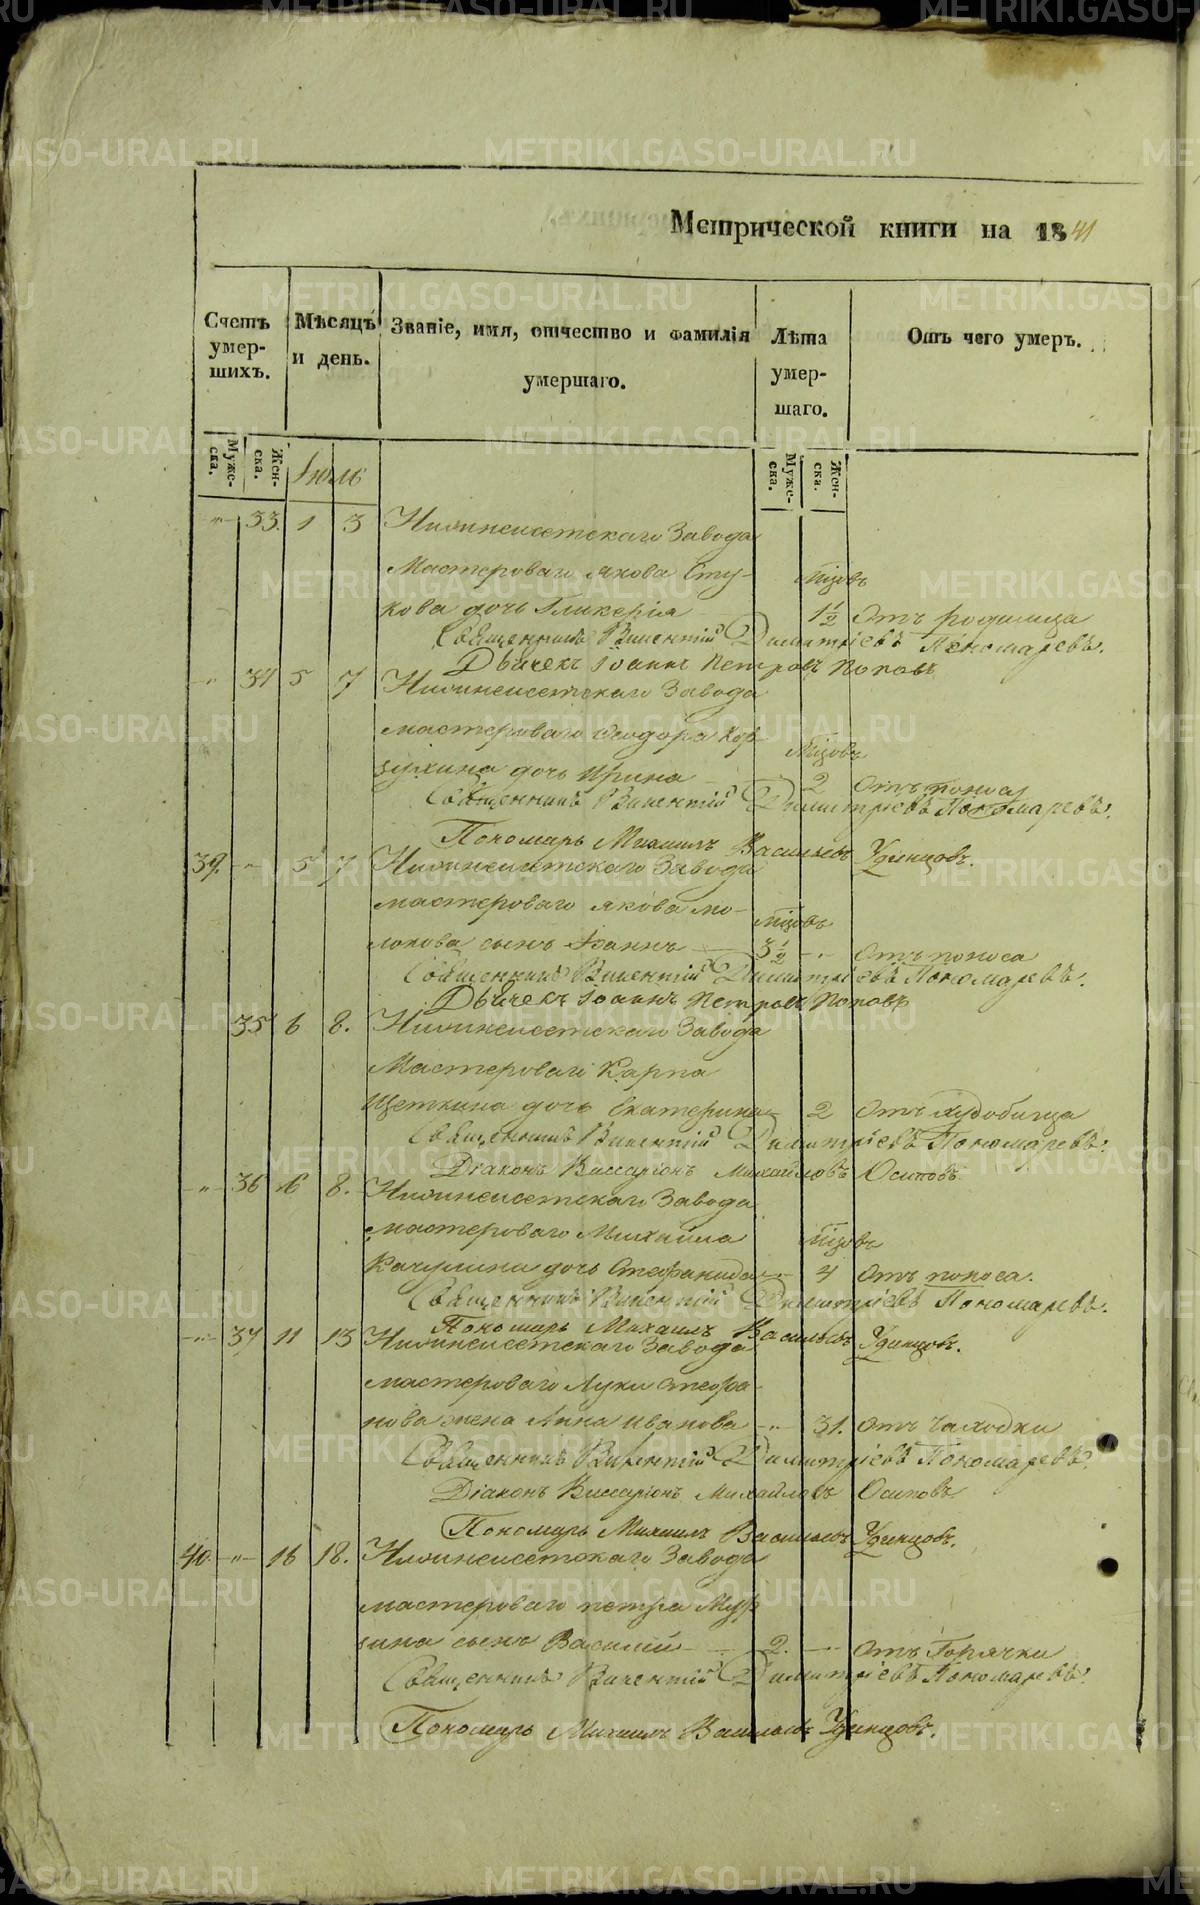 Метрической книги на 1841
Счетъ умер-шихъ.
Мѣсяцъ и день.
Званіе, имя, отчество и фамилія умершаго.
Лѣта умер-шаго.
Отъ чего умеръ.
Мужс-ска.
Жен-ска.
Мужс-ска.
Жен-ска.
Іюль
-"- 33. 1 3 Нижнеисетскаго Завода
Мастероваго Якова Сту- мѣсцовъ
кова дочь Гликерія 1 1/2 Отъ родимца
Священникъ Викентій Димитріевъ Пономаревъ.
Дьячекъ Іоаннъ Петровъ Поповъ
-"- 34 5 7 Нижнеисетскаго Завода
мастероваго Ѳеодора Кор- мѣсцовъ
зухина дочь Ирина 2 отъ поноса
Священникъ Викентій Димитріевъ Пономаревъ.
Пономарь Михаилъ Васильевъ Удинцовъ.
39. -"- 5 7 Нижнеисетскаго Завода
мастероваго Якова Мо- мѣсцовъ
локова сынъ Іоаннъ 3 1/2 -"- отъ поноса
Священникъ Викентій Димитріевъ Пономаревъ.
Дьячекъ Іоаннъ Петровъ Поповъ
35 6 8. Нижнеисетскаго Завода
Мастероваго Карпа
Щеткина дочь Екатерина 2 Отъ худобища
Священникъ Викентій Димитріевъ Пономаревъ.
Діаконъ Виссаріонъ Михайловъ Осиповъ
-"- 36 6 8. Нижнеисетскаго Завода
мастероваго Михаила мѣсцовъ
Качусина дочь Стефанида -"- 4 Отъ поноса.
Священникъ Викентій Димитріевъ Пономаревъ.
Пономарь Михаилъ Васильевъ Удинцовъ.
-"- 37 11 13 Нижнеисетскаго Завода
мастероваго Луки Стефа-
нова жена Анна Иванова -"- 31. отъ Чахотки
Священникъ Викентій Димитріевъ Пономаревъ.
Діаконъ Виссаріонъ Михайловъ Осиповъ
Пономарь Михаилъ Васильевъ Удинцовъ.
40. -"- 16 18. Нижнеисетскаго Завода
мастероваго Петра Мур-
зина сынъ Василій 2. -"- отъ Горячки
Священникъ Викентій Димитріевъ Пономаревъ.
Пономарь Михаилъ Васильевъ Удинцовъ.
METRIKI.GASO-URAL.RU